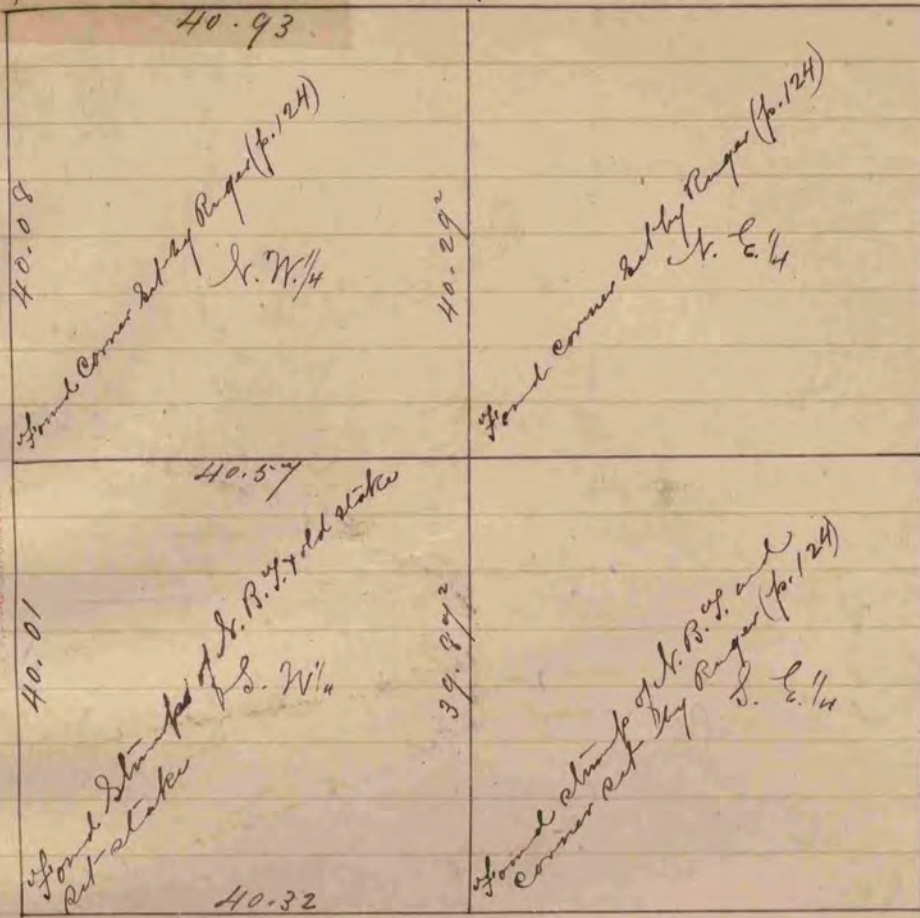 40.93
40.08
Found Corner Set by Ruger (p.124)
N. W. 1/4
40.29²
Found corner set by Ruger (p.124)
N. E. 1/4
40.57
40.01
Found Stumps of N. B. Ts. & old stake
set stake
S. W 1/4
39.87²
40.32
Found stump of N. B. T. and
corner set by Ruger (p.124)
S. E. 1/4